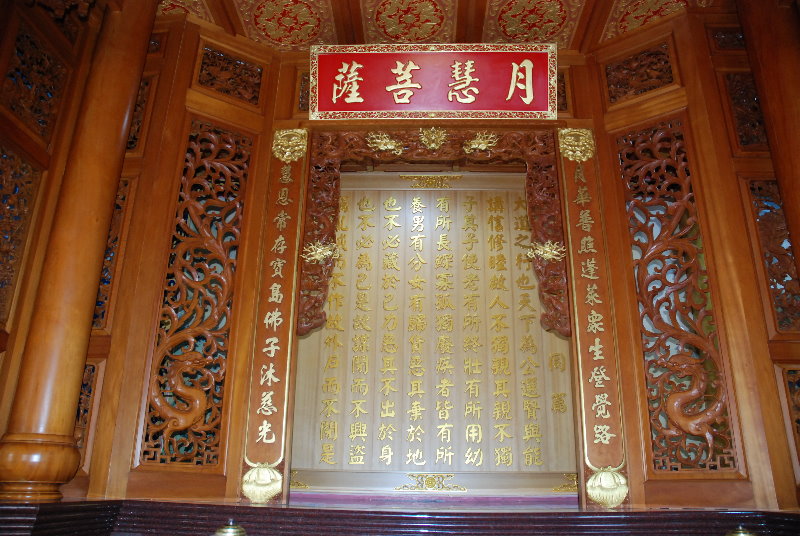 月慧菩薩
月華普照蓬萊眾生登覺路
同篇
大道之行也天下為公選賢與能
講信修睦故人不獨親其親不獨
子其子使老有所終壯有所用幼
有所長鰥寡孤獨廢疾者皆有所
養男有分女有歸貨惡其棄於地
也不必藏於己力惡其不出於身
也不必為己是故謀閉而不興盜
竊亂賊而不作故外戶而不閉是
慧恩常存寶島佛子沐慈光